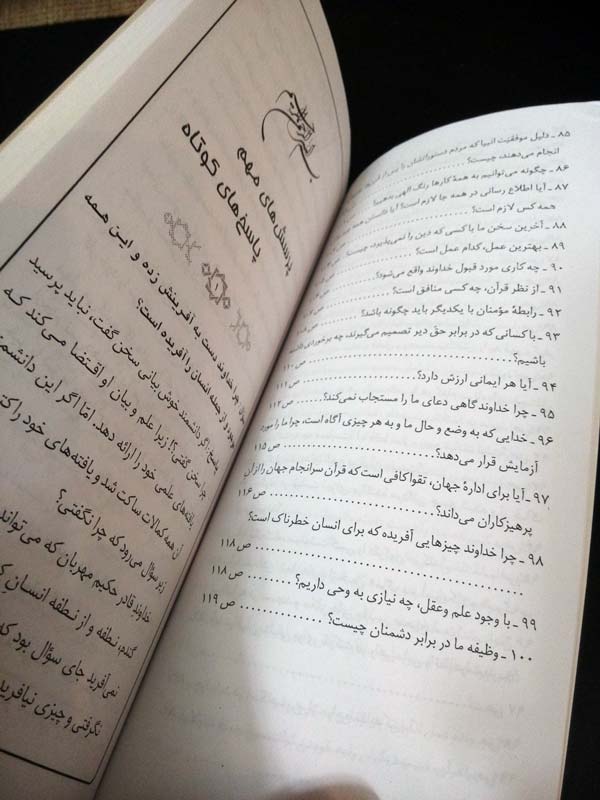 ۸۵ ـ دلیل موفقیّت انبیا که مردم دستوراتشان را
انجام می‌دهند، چیست؟
۸۶ ـ چگونه می‌توانیم به همهٔ کارها رنگ الهی بدهیم؟
۸۷ ـ آیا اطلاع رسانی در همه جا لازم است؟ آیا دانستن همه
همه کس لازم است؟
۸۸ ـ آخرین سخن ما با کسی که دین را نمی‌پذیرد، چیست؟
۸۹ ـ بهترین عمل، کدام عمل است؟
۹۰ ـ چه کاری مورد قبول خداوند واقع می‌شود؟
۹۱ ـ از نظر قرآن، چه کسی منافق است؟
۹۲ ـ رابطهٔ مؤمنان با یکدیگر باید چگونه باشد؟
۹۳ ـ با کسانی که در برابر حق دیر تصمیم می‌گیرند، چه برخوردی داشته
باشیم؟ ........ ص ۱۱۰
۹۴ ـ آیا هر ایمانی ارزش دارد؟ ........ ص ۱۱۱
۹۵ ـ چرا خداوند گاهی دعای ما را مستجاب نمی‌کند؟ ........ ص ۱۱۲
۹۶ ـ خدایی که به وضع و حال ما و به هر چیزی آگاه است، چرا ما را مورد
آزمایش قرار می‌دهد؟ ........ ص ۱۱۵
۹۷ ـ آیا برای ادارهٔ جهان، تقوا کافی است که قرآن سرانجام جهان را از آن
پرهیزکاران می‌داند؟ ........ ص ۱۱۶
۹۸ ـ چرا خداوند چیزهایی آفریده که برای انسان خطرناک است؟
........ ص ۱۱۸
۹۹ ـ با وجود علم و عقل، چه نیازی به وحی داریم؟ ........ ص ۱۱۸
۱۰۰ ـ وظیفه ما در برابر دشمنان چیست؟ ........ ص ۱۱۹
پرسش‌های مهم
پاسخ‌های کوتاه
۱
چرا خداوند دست به آفرینش زده و این همه
موجود و از جمله انسان را آفریده است؟
پاسخ: اگر دانشمند خوش بیانی سخن گفت، نباید پرسید
چرا سخن گفتی؟! زیرا علم و بیان او اقتضا می‌کند که
یافته‌های علمی خود را ارائه دهد. امّا اگر این دانشمند
آن همه کمالات ساکت شد و یافته‌های خود را
زیر سؤال می‌رود که چرا نگفتی؟
خداوند قادر حکیم مهربان که می‌تواند
گندم، نطفه و از نطفه انسان
نمی‌آفرید جای سؤال بود که
نگرفتی و چیزی